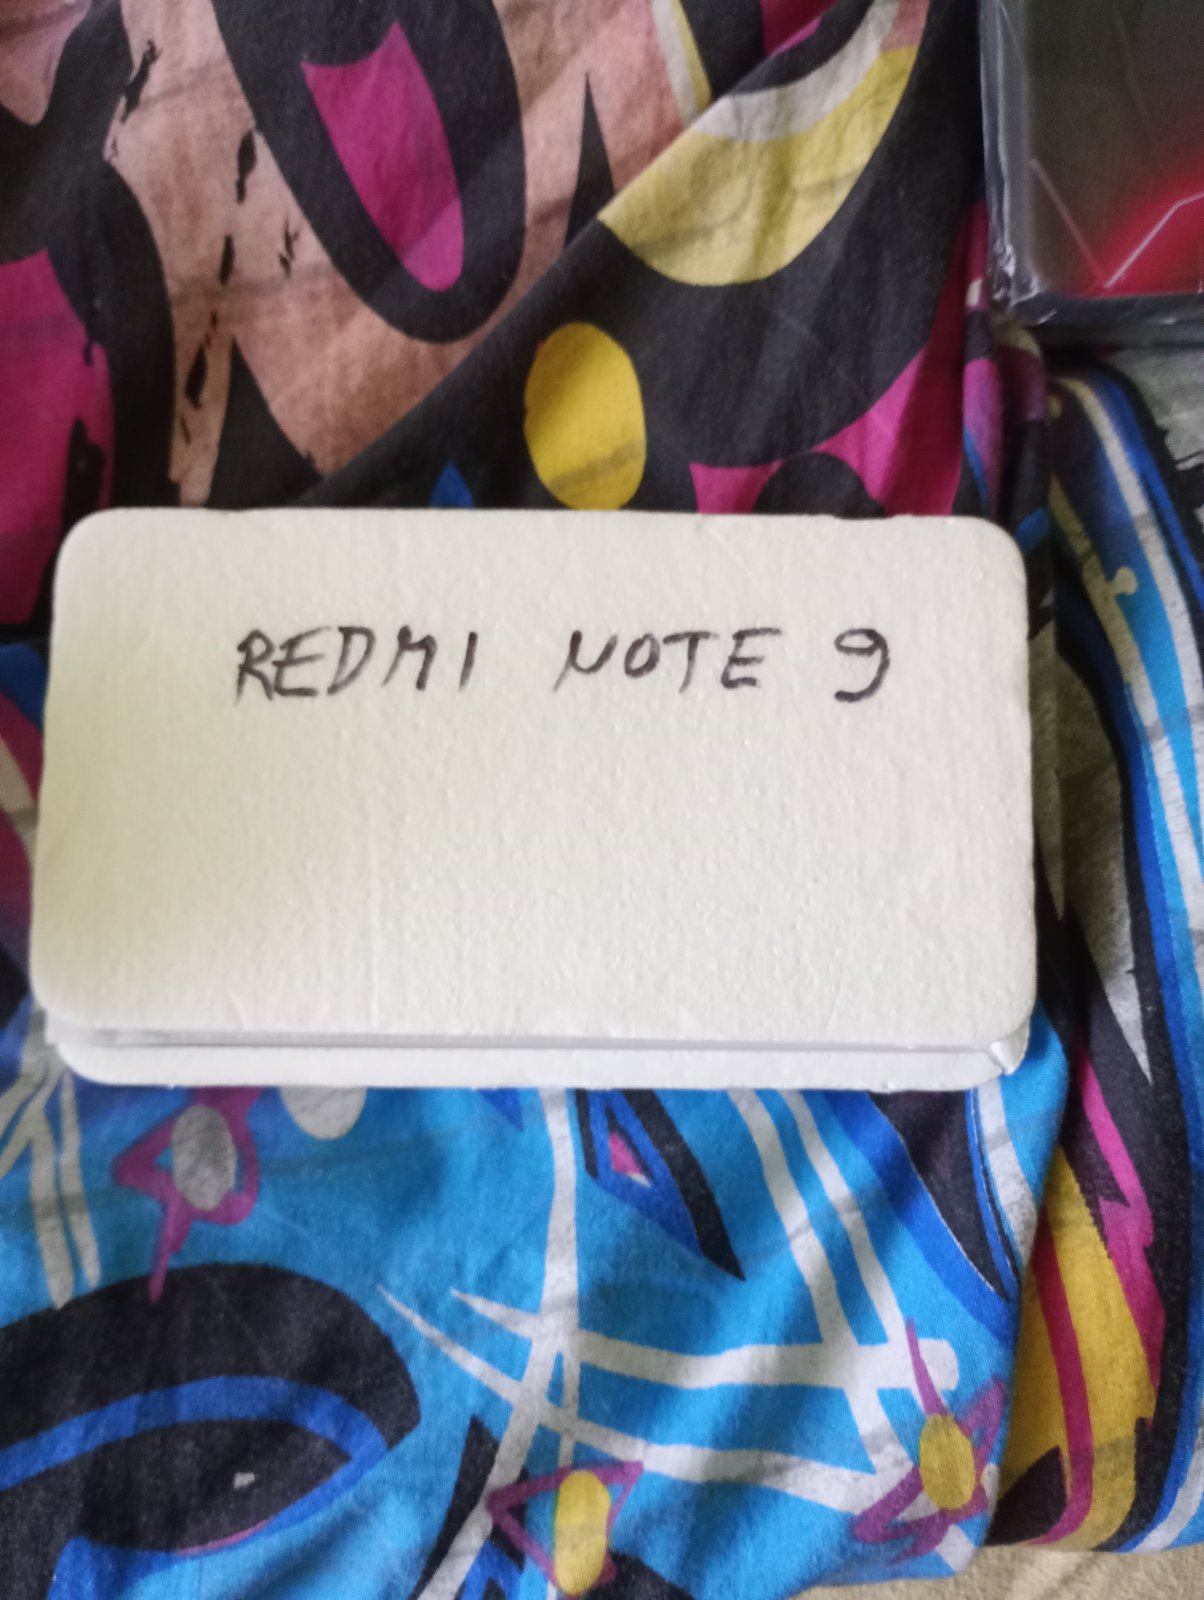 REDMI NOTE 9